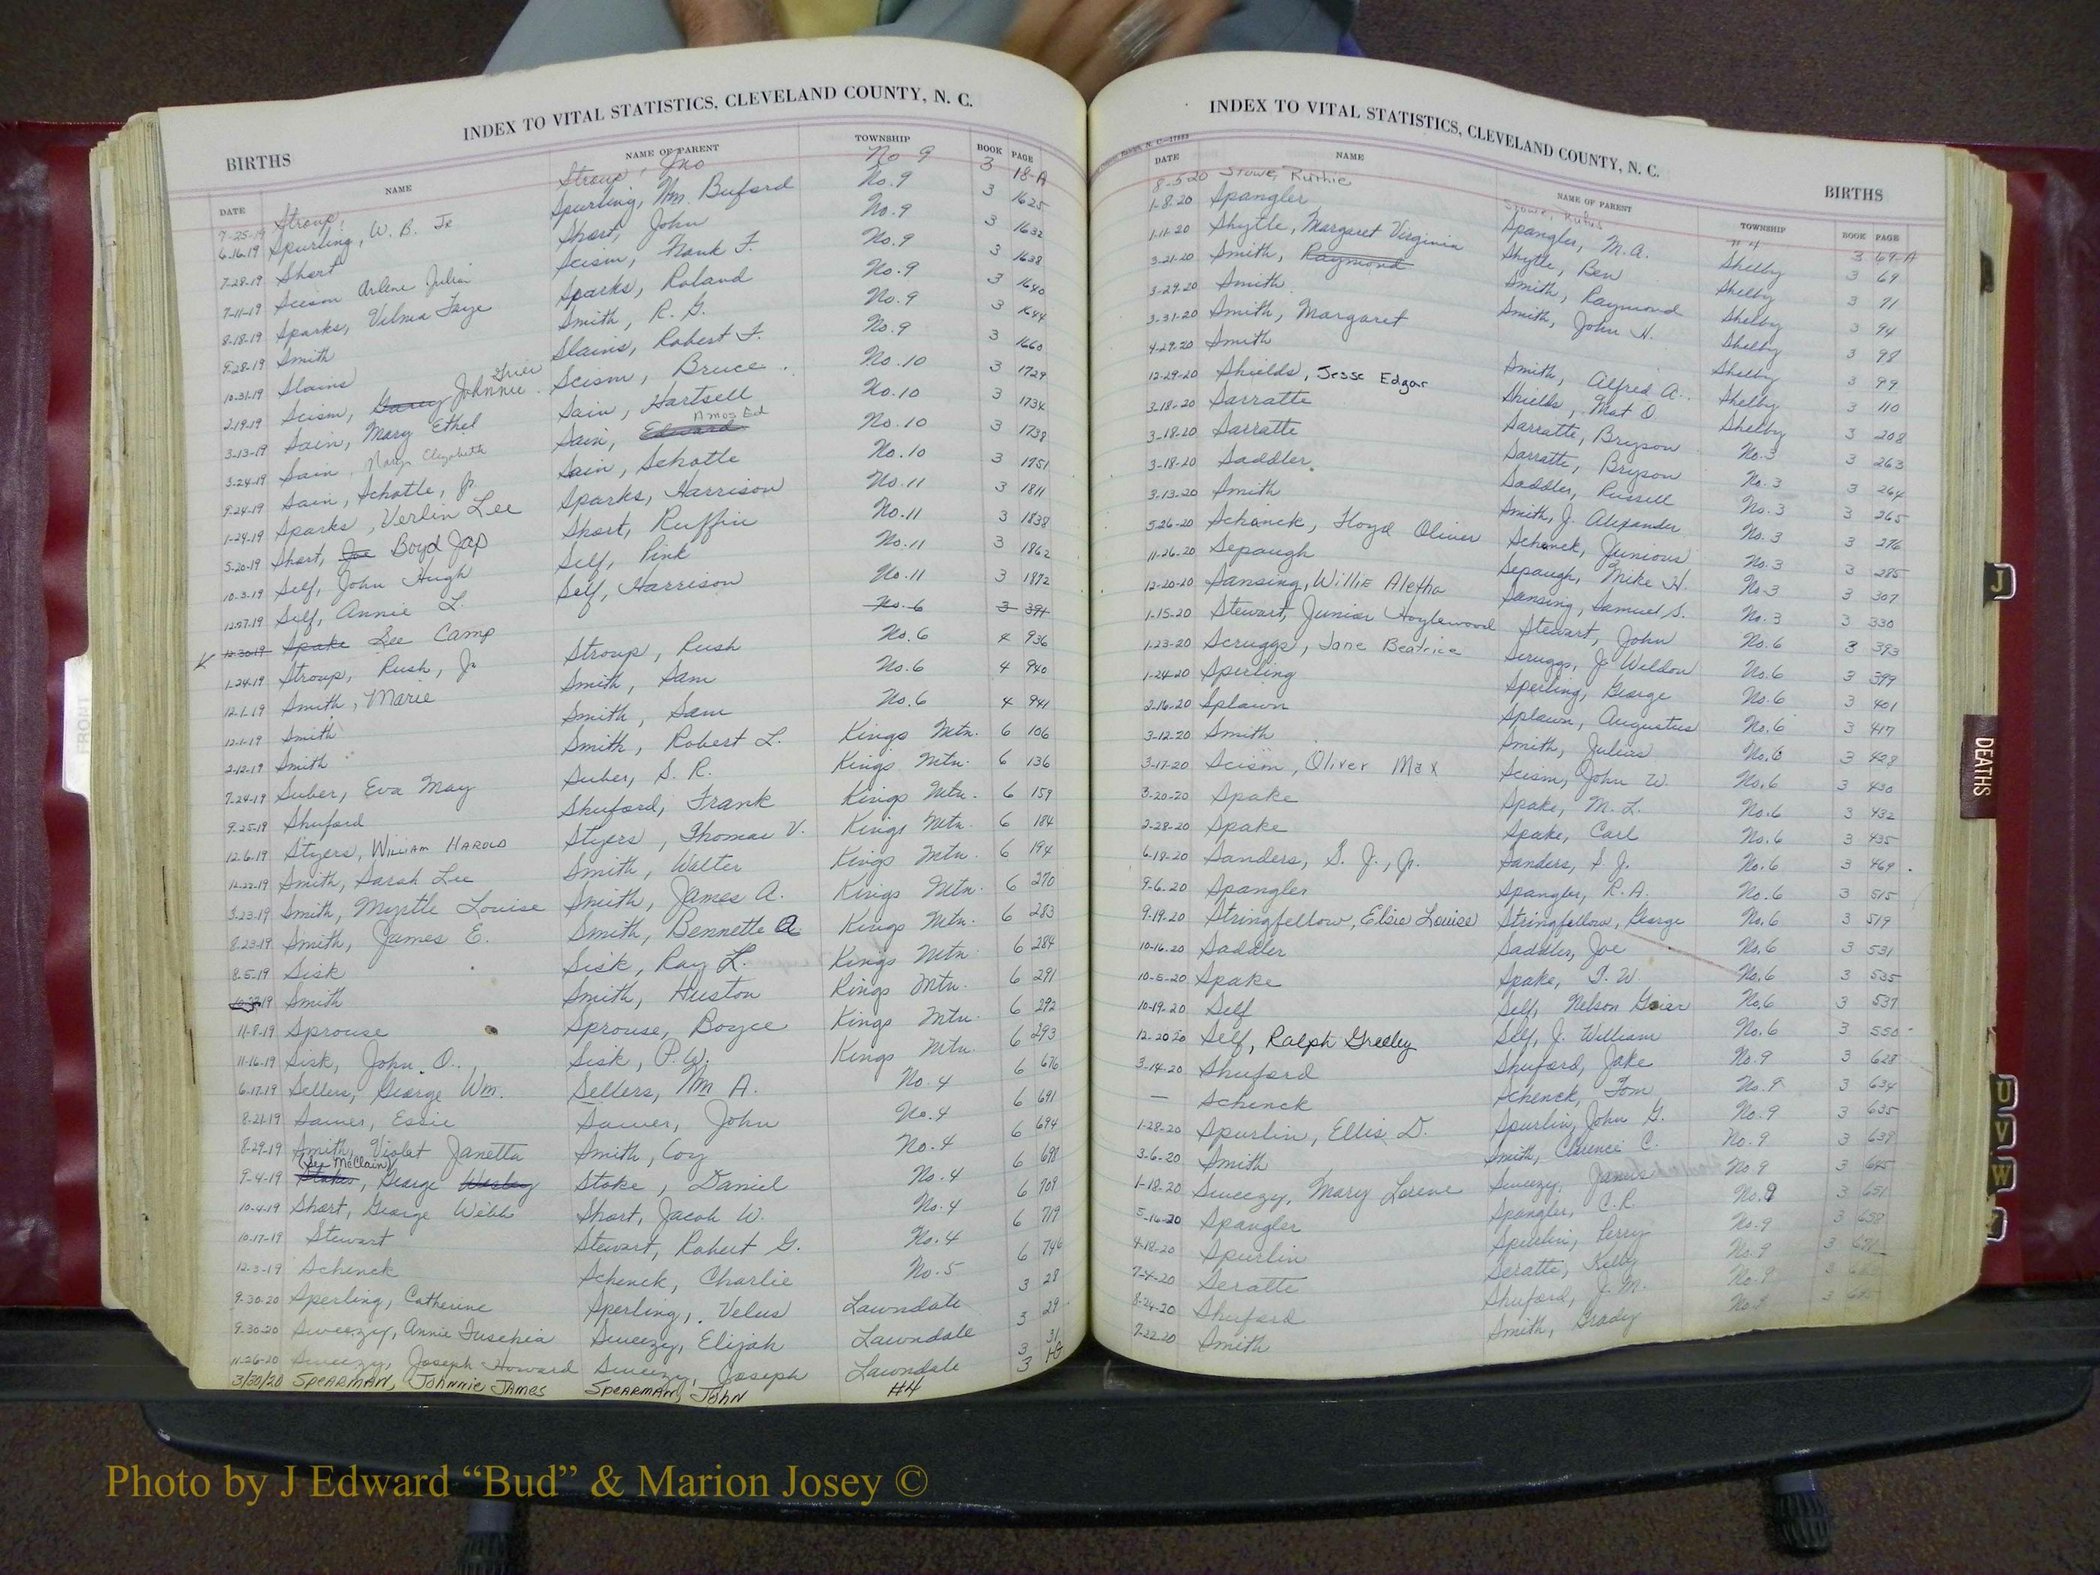 INDEX TO VITAL STATISTICS, CLEVELAND COUNTY, N. C.
BIRTHS
DATE NAME NAME OF PARENT TOWNSHIP BOOK PAGE
7-25-19 Stroup, Stroup, Jno No 9 3 18-A
6-16-19 Spurling, W. B. Jr Spurling, Wm. Buford No. 9 3 1625
7-28-19 Short Short, John No. 9 3 1632
7-11-19 Scism Arlene Julia Scism, Frank F. No. 9 3 1638
8-18-19 Sparks, Velma Faye Sparks, Roland No. 9 3 1640
9-28-19 Smith Smith, R. G. No. 9 3 1644
10-31-19 Slains Slains, Robert F. No. 9 3 1660
2-19-19 Scism, Johnnie Scism, Bruce No. 10 3 1729
3-13-19 Sain, Mary Ethel Sain, Hartsell No. 10 3 1734
3-24-19 Sain, Mary Elizabeth Sain, Edward Amos Ed No. 10 3 1738
9-24-19 Sain, Schotle, Jr. Sain, Schotle No. 10 3 1751
1-24-19 Sparks, Verlin Lee Sparks, Harrison No. 11 3 1811
5-20-19 Short, Joe Boyd Jap Short, Ruffin No. 11 3 1838
10-3-19 Self, John Hugh Self, Pink No. 11 3 1862
12-27-19 Self, Annie L. Self, Harrison No. 11 3 1872
12-30-19 Spake See Camp No. 6 3 394
1-24-19 Stroup, Rush, Jr Stroup, Rush No. 6 4 936
12-1-19 Smith, Marie Smith, Sam No. 6 4 940
12-1-19 Smith Smith, Sam No. 6 4 941
2-12-19 Smith Smith, Robert L. Kings Mtn. 6 106
7-24-19 Suber, Eva May Suber, S. R. Kings Mtn. 6 136
9-25-19 Shuford Shuford, Frank Kings Mtn. 6 159
12-6-19 Styers, William Harold Styers, Thomas V. Kings Mtn. 6 184
12-22-19 Smith, Sarah Lee Smith, Walter Kings Mtn. 6 194
3-23-19 Smith, Myrtle Louise Smith, James A. Kings Mtn. 6 270
8-23-19 Smith, James E. Smith, Bennette A Kings Mtn. 6 283
8-5-19 Sisk Sisk, Ray L. Kings Mtn. 6 284
Smith Smith, Huston Kings Mtn. 6 291
11-8-19 Sprouse Sprouse, Boyce Kings Mtn. 6 292
11-16-19 Sisk, John O. Sisk, P. W. Kings Mtn. 6 293
6-17-19 Sellers, George Wm. Sellers, Wm A. No. 4 6 676
8-21-19 Sawer, Essie Sawer, John No. 4 6 691
8-29-19 Smith, Violet Janetta Smith, Coy No. 4 6 694
9-4-19 Stokes, (See McClain) George Wesley Stoke, Daniel No. 4 6 698
10-4-19 Short, George Webb Short, Jacob W. No. 4 6 709
10-17-19 Stewart Stewart, Robert G. No. 4 6 719
12-3-19 Schenck Schenck, Charlie No. 5 6 746
9-30-20 Sperling, Catherine Sperling, Velus Lawndale 3 28
9-30-20 Sweezy, Annie Sweezy, Elijah Lawndale 3 29
11-26-20 Sweezy, Joseph Howard Sweezy, Joseph Lawndale 3 31
3/30/20 Spearman, Johnnie James Spearman, John #4 3
INDEX TO VITAL STATISTICS, CLEVELAND COUNTY, N. C.
BIRTHS
DATE NAME NAME OF PARENT TOWNSHIP BOOK PAGE
8-5-20 Stowe, Ruthie Stowe, Rufus #4 3 69-A
1-8-20 Spangler Spangler, M. A. Shelby 3 69
1-11-20 Shytle, Margaret Virginia Shytle, Ben Shelby 3 71
3-21-20 Smith, Raymond Smith, Raymond Shelby 3 94
3-29-20 Smith Smith, John H. Shelby 3 98
3-31-20 Smith, Margaret Shelby 3 99
4-29-20 Smith Smith, Alfred A. Shelby 3 110
12-29-20 Shields, Jesse Edgar Shields, Mat O Shelby 3 208
3-18-20 Sarratte Sarratte, Bryson No. 3 3 263
3-18-20 Sarratte Sarratte, Bryson No. 3 3 264
3-18-20 Saddler Saddler, Russell No. 3 3 265
3-13-20 Smith Smith, J. Alexander No. 3 3 276
5-26-20 Schenck, Floyd Oliver Schenck, Junious No. 3 3 285
11-26-20 Sepaugh Sepaugh, Mike H. No. 3 3 307
12-20-20 Sansing, Willie Aletha Sansing, Samuel S. No. 3 3 330
1-15-20 Stewart, Junior Hoylewood Stewart, John No. 6 3 393
1-23-20 Scruggs, Jane Beatrice Scruggs, J. Weldon No. 6 3 399
1-24-20 Sperling Sperling, George No. 6 3 401
2-16-20 Splawn Splawn, Augustus No. 6 3 417
3-12-20 Smith Smith, Julius No. 6 3 428
3-17-20 Scism, Oliver Max Scism, John W. No. 6 3 430
3-20-20 Spake Spake, M. L. No. 6 3 432
2-28-20 Spake Spake, Carl No. 6 3 435
6-18-20 Sanders, S. J., Jr. Sanders, S. J. No. 6 3 469
9-6-20 Spangler Spangler, R. A. No. 6 3 515
9-19-20 Stringfellow, Elsie Louise Stringfellow, George No. 6 3 519
10-16-20 Saddler Saddler, Joe No. 6 3 531
10-5-20 Spake Spake, T. W. No. 6 3 535
10-19-20 Self Self, Nelson No. 6 3 537
12-20-20 Self, Ralph Greeley Self, J. William No. 6 3 550
3-14-20 Shuford Shuford, Jake No. 9 3 628
— Schenck Schenck, Tom No. 9 3 634
1-28-20 Spurlin, Ellis D. Spurlin, John G. No. 9 3 635
3-6-20 Smith Smith, Clarence C. No. 9 3 639
1-18-20 Sweezy, Mary Lorene Sweezy, James No 9 3 645
5-16-20 Spangler Spangler, C. R. No. 9 3 651
4-18-20 Spurlin Spurlin, Perry No. 9 3 658
7-4-20 Seratte Seratte, Kelly No. 9 3
8-24-20 Shuford Shuford, J. M. No. 9 3
7-22-20 Smith Smith, Grady No. 9 3
FRONT
J
DEATHS
U
V
W
Photo by J Edward “Bud” & Marion Josey ©